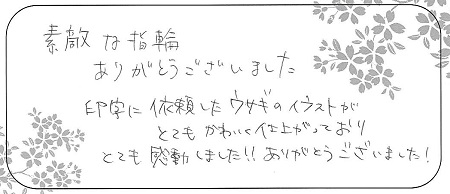 素敵な指輪
ありがとうございました
印字に依頼したウサギのイラストが
とてもかわいく仕上がっており
とても感動しました!!ありがとうございました!